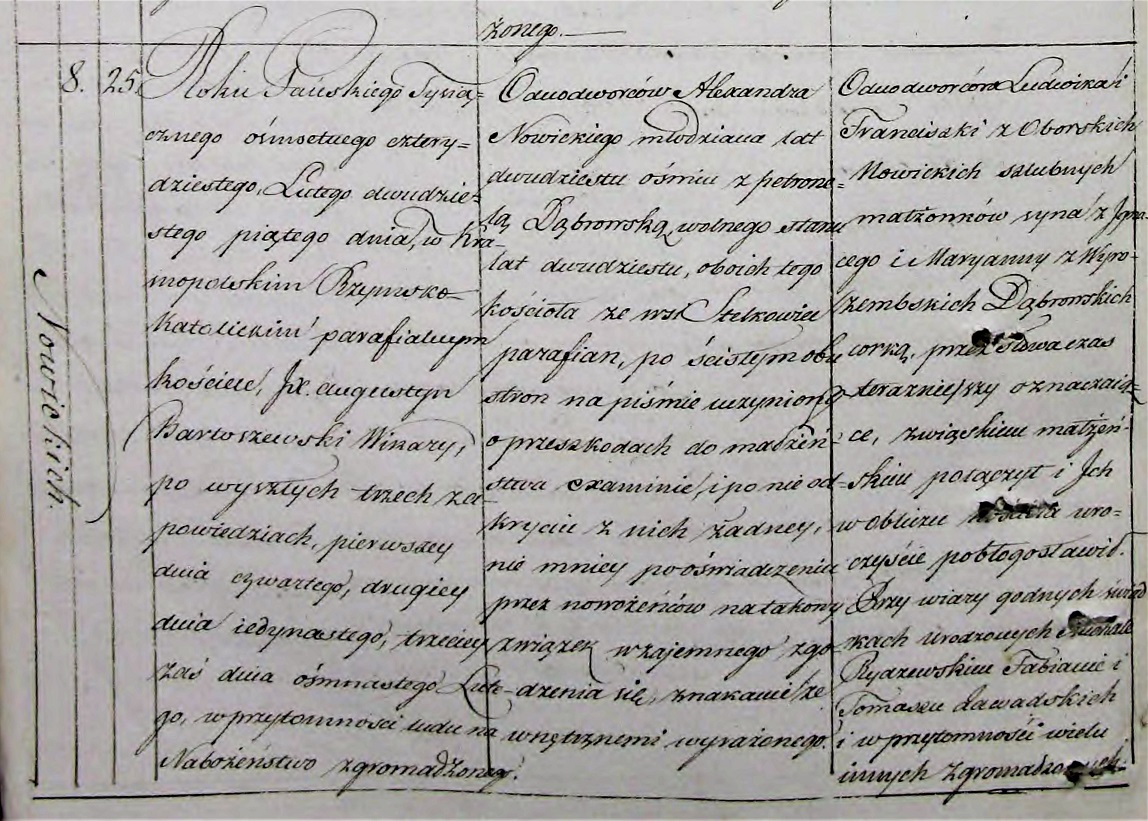 żonego.
8.
25.
Nowickich.
Roku Pańskiego Tysią=
cznego ośmsetnego cztery=
dziestego, Lutego dwudzie=
stego piątego dnia, w Kra-
snopolskim Rzymsko=
Katolickim parafialnym
kościele, Jx. augustyn
Bartoszewski Wikary,
po wyszłych trzech za-
powiedziach, pierwszey
dnia czwartego, drugiey
dnia iedynastego, trzeciey
zaś dnia ośmnastego Lute-
go, w przytomności ludu na
Nabożeństwo zgromadzonego.
Odnodworców Alexandra
Nowickiego młodziana lat
dwudziestu ośmiu z petrone=
lą Dąbrowską wolnego stanu
lat dwudziestu, oboich tego
kościoła ze wsi
parafian, po ścisłym obu
stron na piśmie uczyniong
o przeszkodach do małżeń-
stwa examinie, i po nie od-
kryciu z nich żadney,
nie mniey po oświadczeniu
przez nowożeńców na takowy
związek wzajemnego zgo-
dzenia się, znakami ze
wnętrznemi wyrażonego.
Odnodworców Ludwika i
Franciszki z Oborskich
Nowickich szlubnych
małżonków syna z Igna
cego i Maryanny z Wyro=
zembskich Dąbrowskich
corką, przez słowa czas
teraznieyszy oznaczaią=
ce, związkiem małżeń-
skim połączył i Ich
w obliczu kościoła uro=
czyście pobłogosławił.
Przy wiary godnych świad
kach Urodzonych Michale
Rydzewskim Fabianie i
Tomaszu Zawadskich
i w przytomności wielu
innych zgromadzonych.